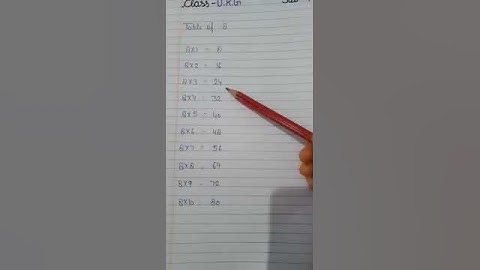 Class - U.K.G
Table of 8
8×1 = 8
8×2 = 16
8×3 = 24
8×4 = 32
8×5 = 40
8×6 = 48
8×7 = 56
8×8 = 64
8×9 = 72
8×10 = 80